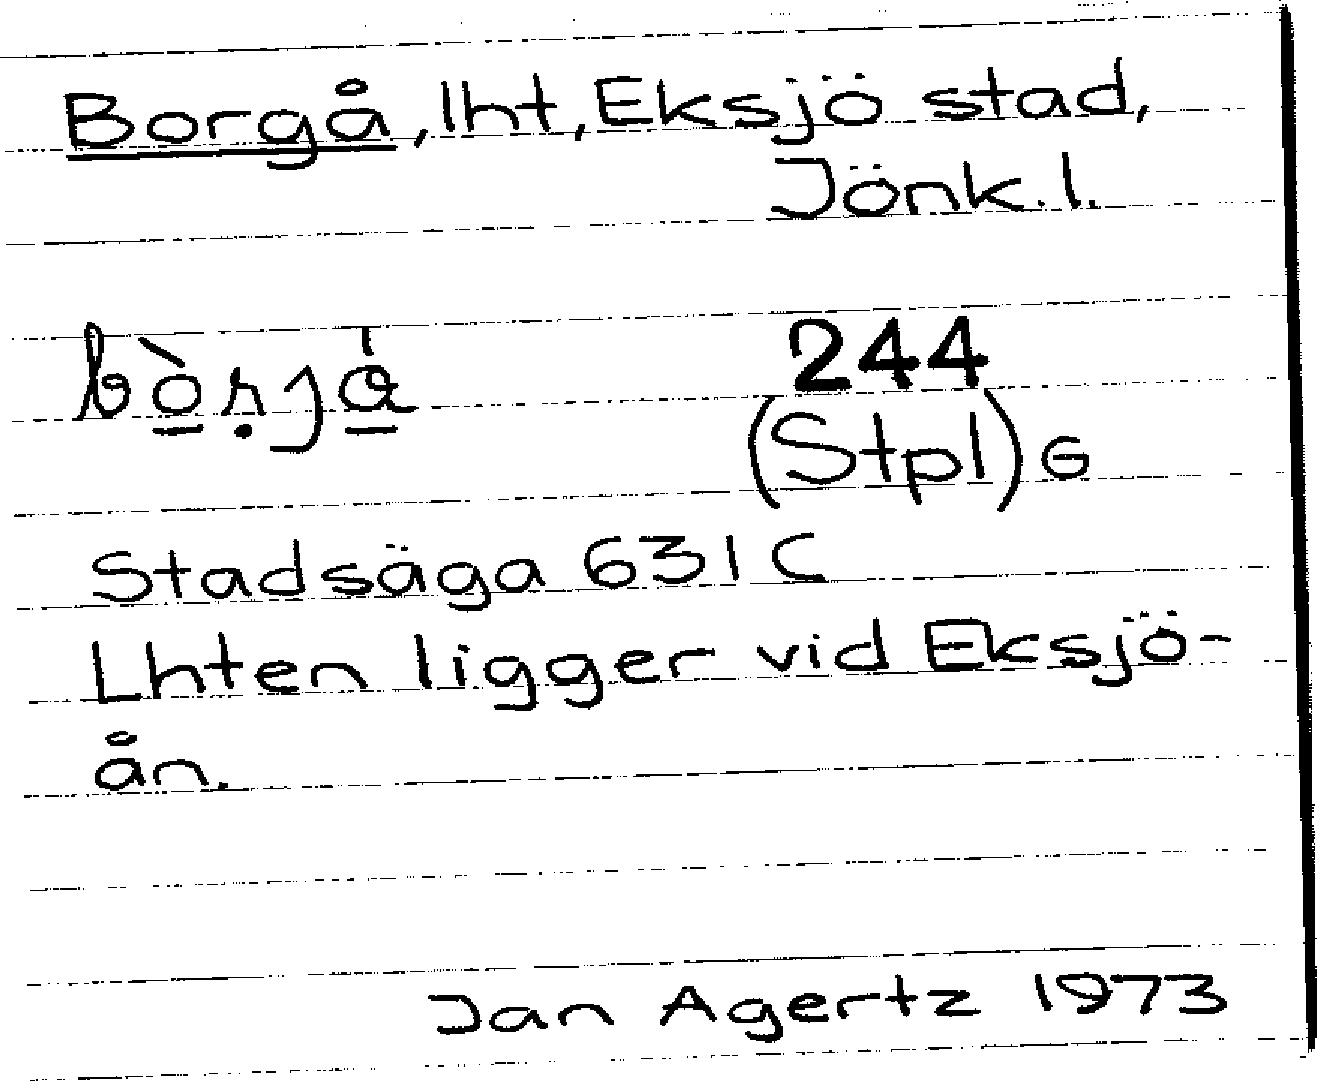 Borgå, lht, Eksjö stad,
Jönk. l.
244
(Stpl) G
Stadsäga 631 C
Lhten ligger vid Eksjö-
ån.
Jan Agertz 1973